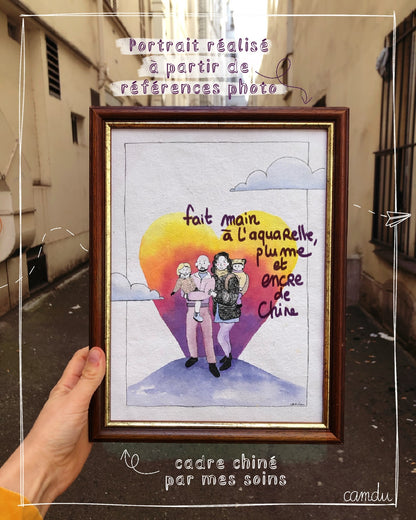 Portrait réalisé
à partir de
références photo
fait main
à l'aquarelle,
plume
et
encre
de
Chine
cadre chiné
par mes soins
camdu